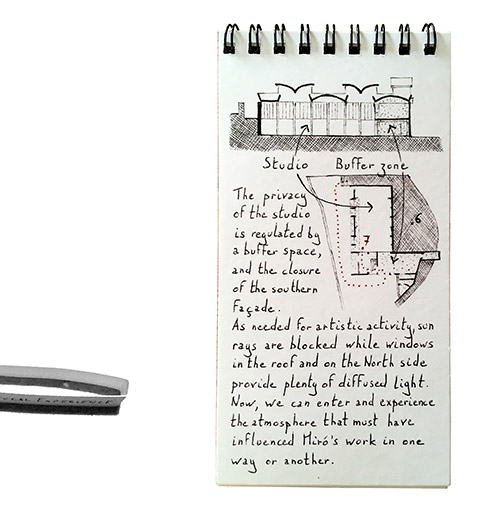 Studio Buffer zone
.6
.7
The privacy
of the studio
is regulated by
a buffer space,
and the closure
of the southern
façade.
As needed for artistic activity, sun
rays are blocked while windows
in the roof and on the North side
provide plenty of diffused light.
Now, we can enter and experience
the atmosphere that must have
influenced Miró's work in one
way or another.
EXPERIENCE